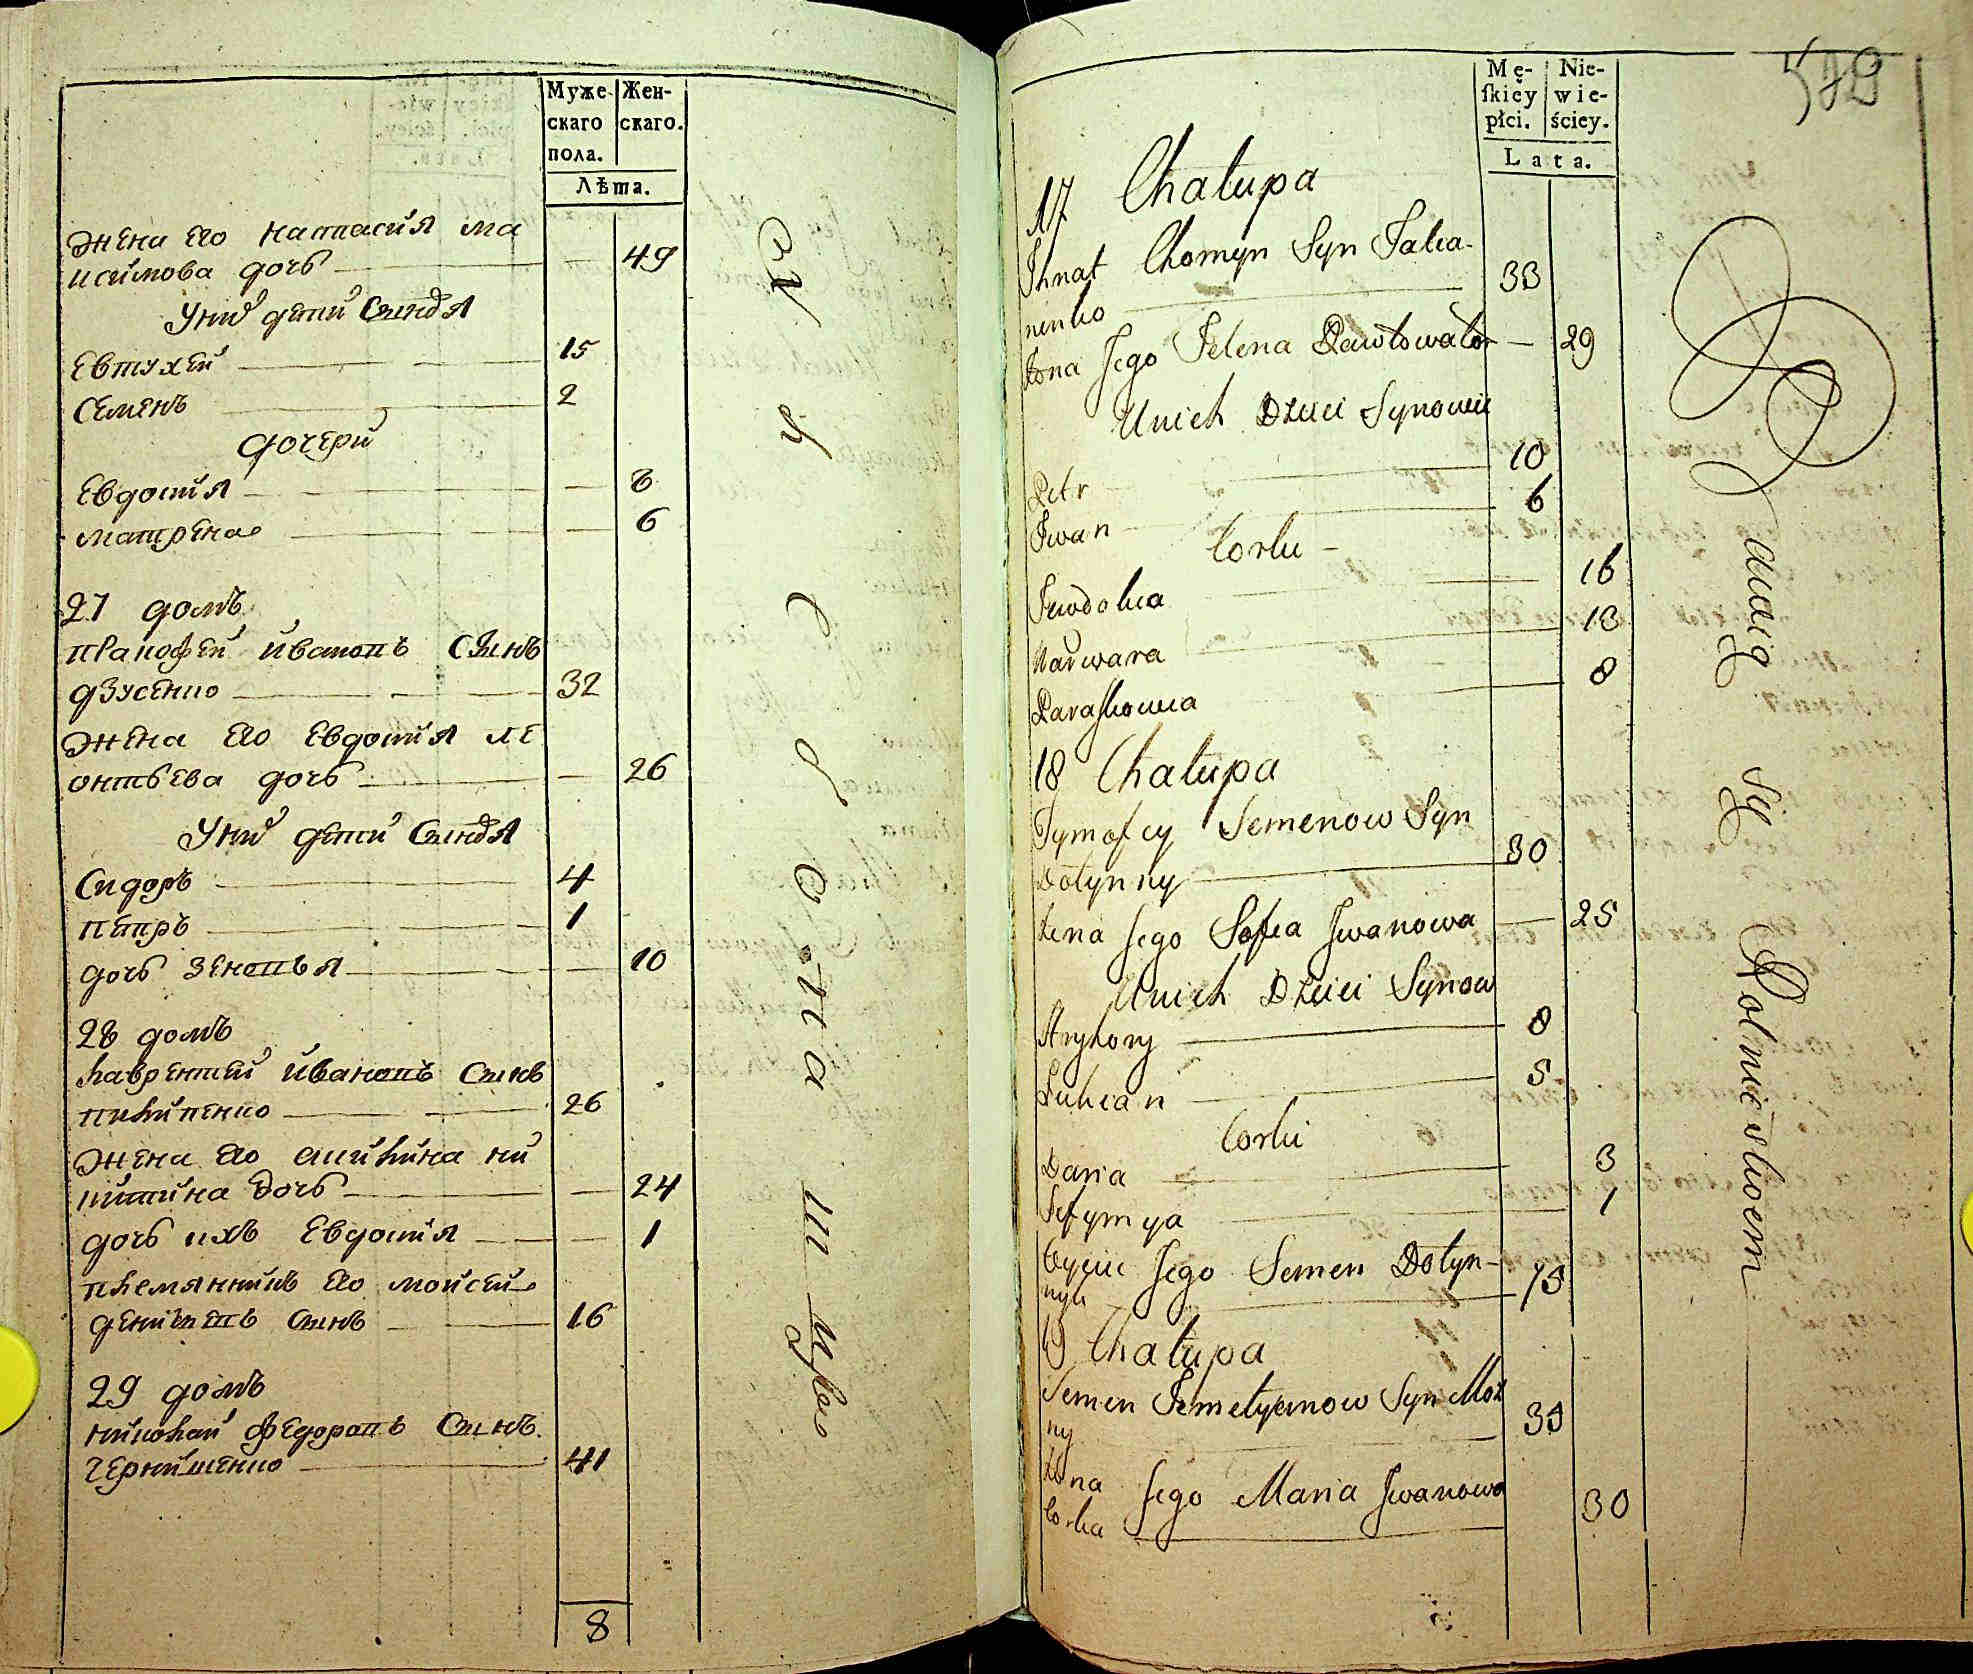 Муже- Жен-
скаго скаго.
пола.
Лѣта.
жена его настасия ма
исимова дочь 49
У них дѣти Сыновья
Евтухей 15
Семенъ 2
дочери
Евдокия 8
матрена 6
27 домъ
Ивановъ Сынъ
дзусенко 32
жена его Евдокия ле
онтьева дочь 26
У них дѣти Сыновья
Сидоръ 4
петръ 1
дочь зеновья 10
28 домъ
лаврентей Ивановъ Сынъ
пилипенко 26
жена его акилина ни
китина дочь 24
дочь ихъ Евдокия 1
племянникъ его моисей
сынъ 16
29 домъ
николай федоровъ Сынъ
чернишенко 41
8
5
Mę- Nie-
ſkiéy wie-
płci. ściey.
Lata.
17 Chałupa
Ihnat Chomyn Syn
nenko 33
Żona Jego Jelena 29
U nich Dzieci Synowie
Petr 10
Iwan 6
Corki
Iewdokia 16
Warwara 13
Paraſkowia 8
18 Chałupa
Tymofey Semenow Syn
Dołynny 30
Żena Jego Sofia Iwanowa 25
U nich Dzieci Synow
Hryhory 8
Łukian 5
Corki
Daria 3
Jefymya 1
Oyciec Jego Semen Dołyn-
nyi 75
19 Chałupa
Semen Syn Moz
ny 35
Żona Jego Maria Iwanowa
Corka 30
Bawią się Rolnictwem